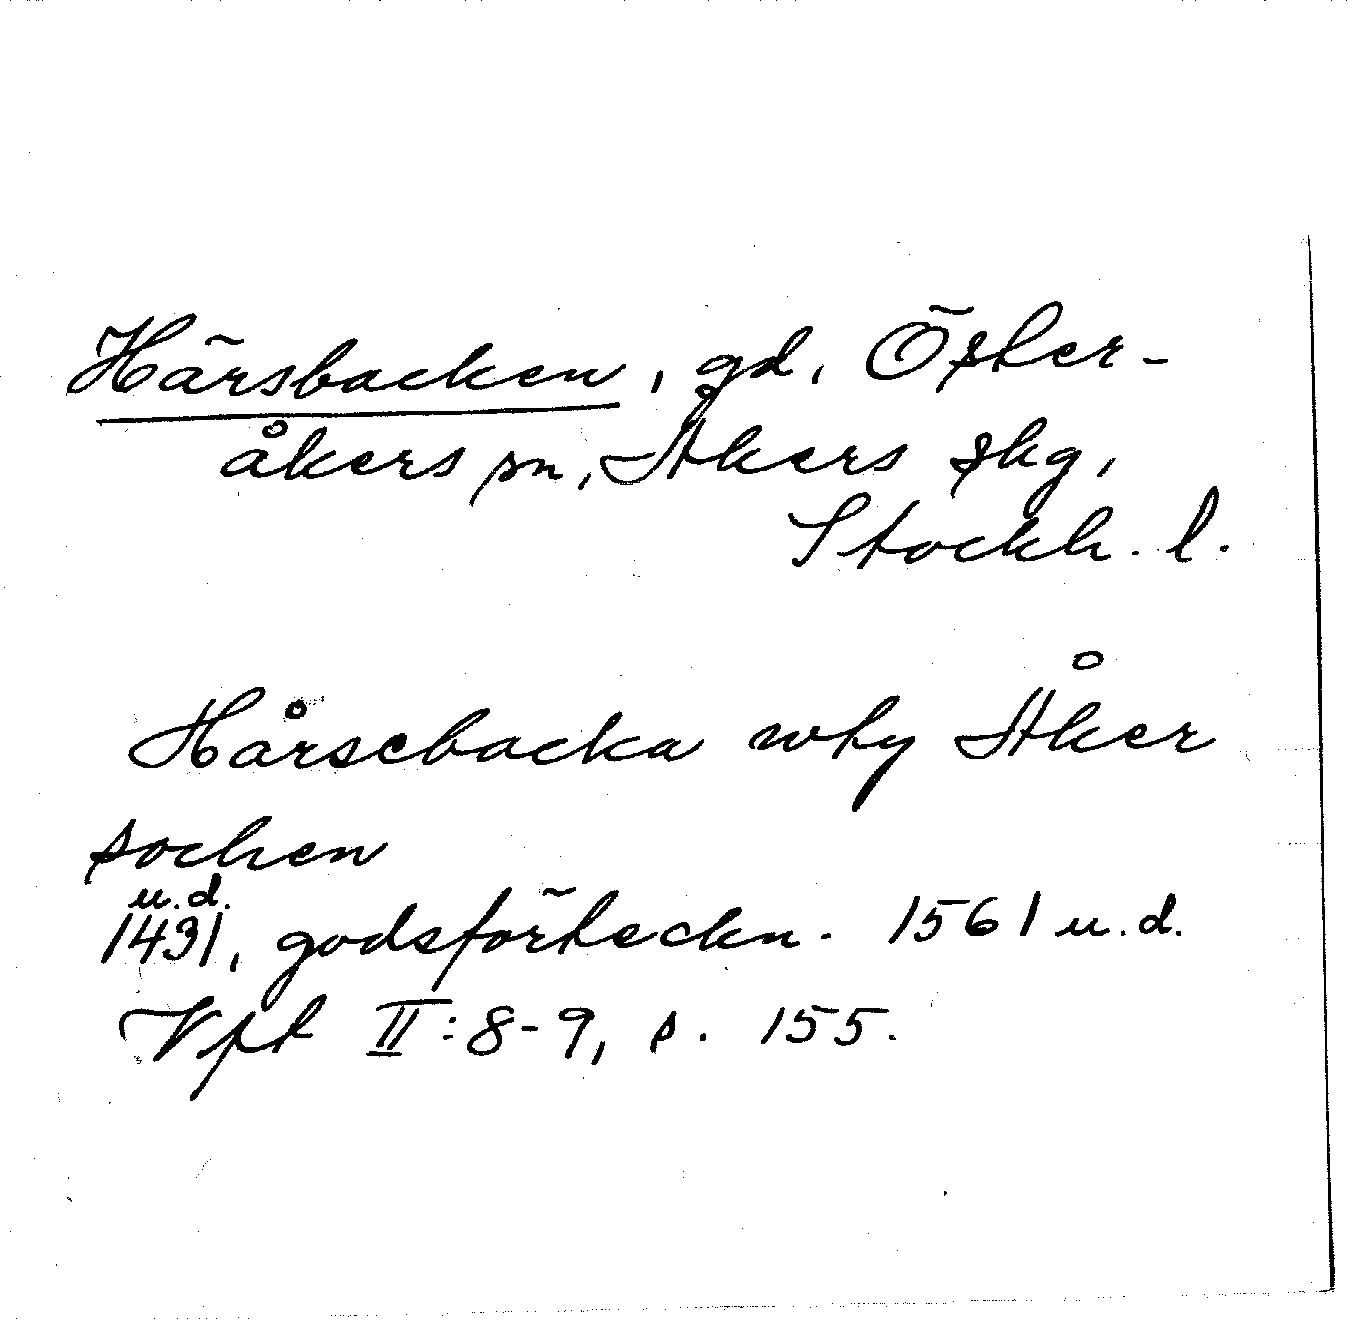 Härsbacken, gd, Öster-
åkers sn, Åkers skg,
Stockh. l.
Hårsebacka wty Åker
sochen
u.d.
1431, godsförteckn. 1561 u.d.
Vpt II:8-9, s. 155.